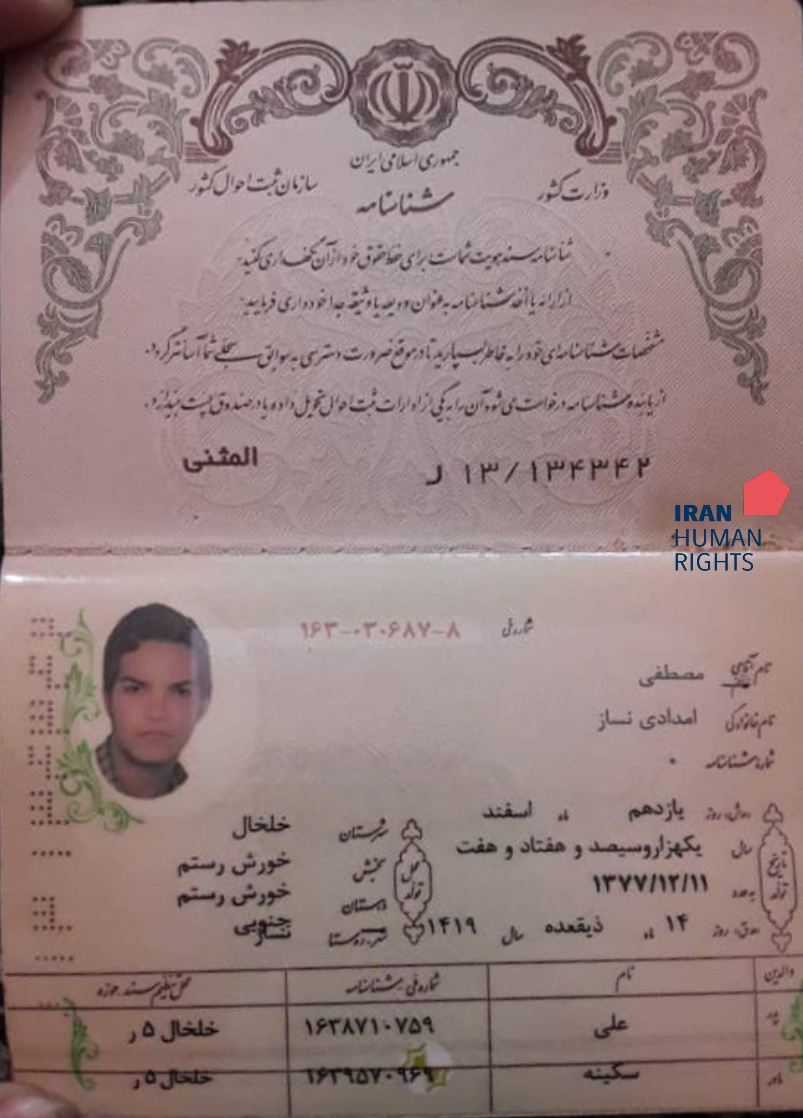 جمهوری اسلامی ایران
وزارت کشور
سازمان ثبت احوال کشور
شناسنامه
شناسنامه سند هویت شماست برای حفظ حقوق خود از آن نگهداری کنید.
از ارائه یا أخذ شناسنامه به عنوان ودیعه یا وثیقه جداً خودداری فرمایید.
مشخصات شناسنامه‌ای خود را به خاطر بسپارید تا در موقع ضرورت دسترسی به سوابق سجلی شما آسانتر گردد.
از یابنده شناسنامه درخواست می شود آن را به یکی از ادارات ثبت احوال تحویل داده و یا در صندوق پست بیندازد.
المثنی
۱۳/۱۳۴۳۴۲ ل
IRAN
HUMAN
RIGHTS
شماره ملی ۱۶۳-۰۳۰۶۸۷-۸
نام آقای مصطفی
نام خانوادگی امدادی نساز
شماره شناسنامه ۰
تاریخ تولد
روز یازدهم ماه اسفند
سال یکهزاروسیصد و هفتاد و هفت
به عدد ۱۳۷۷/۱۲/۱۱
روز ۱۴ ماه ذیقعده سال ۱۴۱۹
محل تولد
شهرستان خلخال
بخش خورش رستم
دهستان خورش رستم جنوبی
شهر-روستا نساز
والدین نام شماره ملی-شناسنامه محل تنظیم سند-حوزه
پدر علی ۱۶۳۸۷۱۰۷۵۹ خلخال ۵ ر
مادر سکینه ۱۶۳۹۵۷۰۹۶۹ خلخال ۵ ر